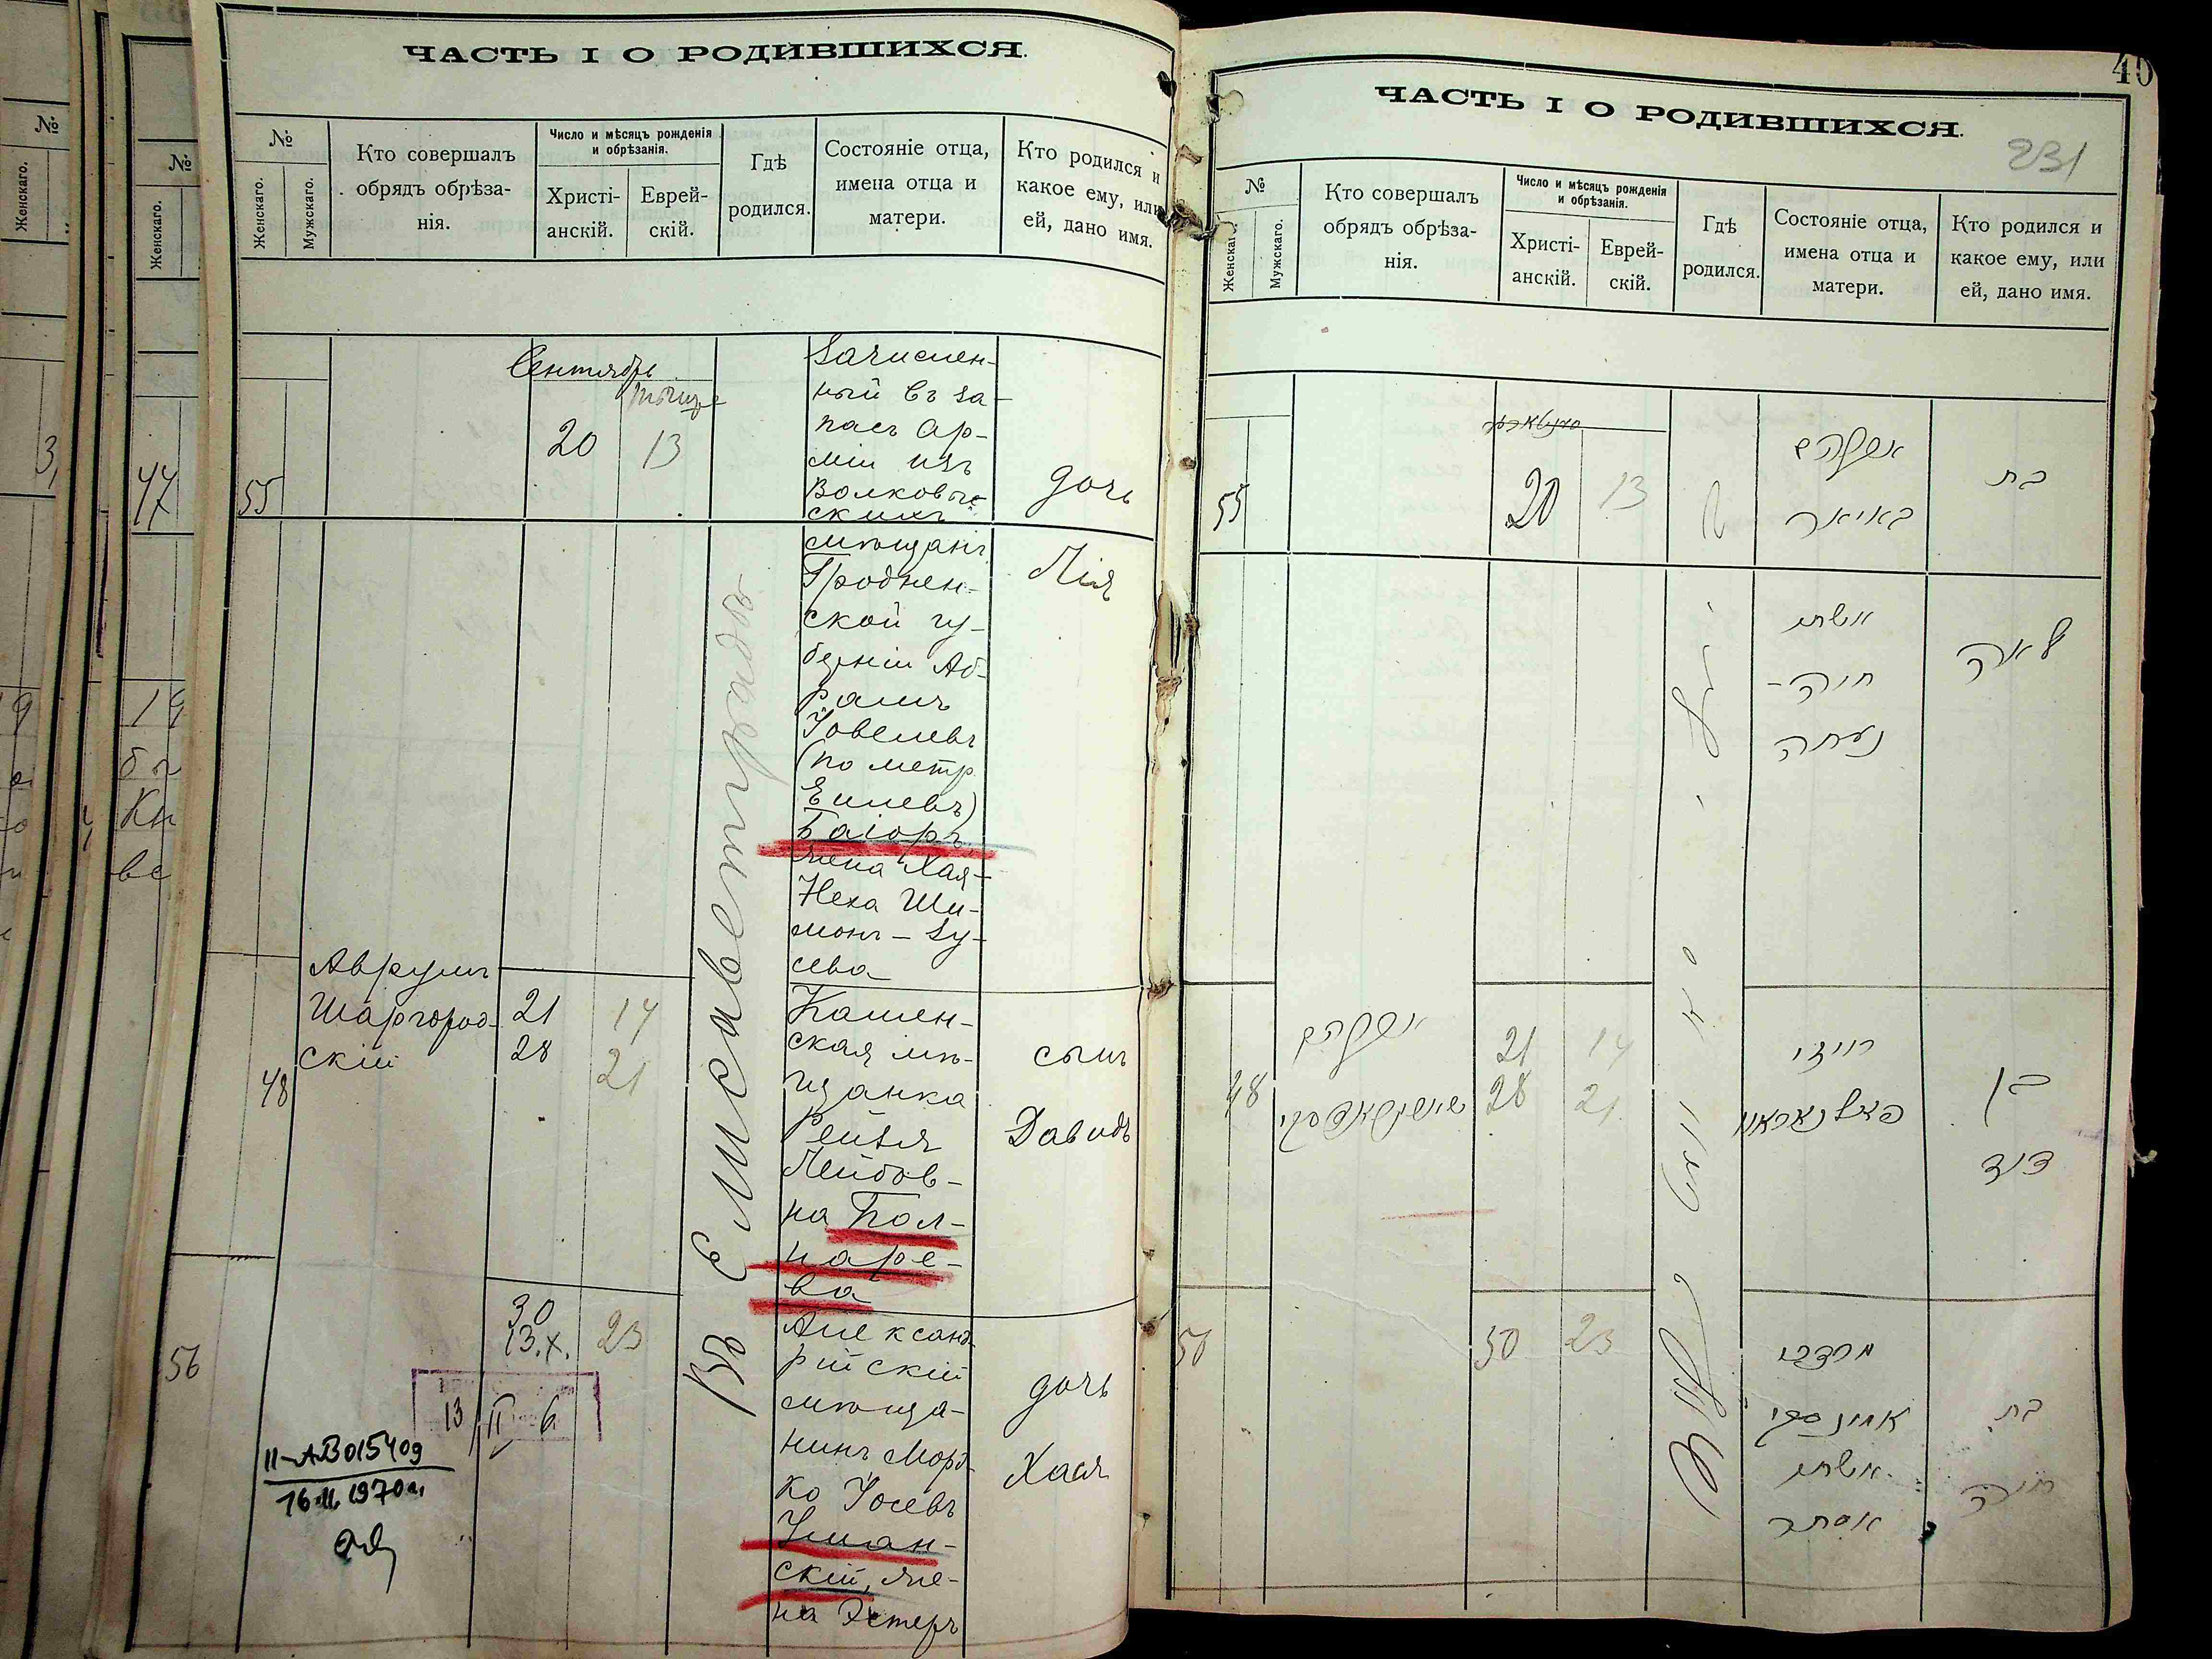 ЧАСТЬ I О РОДИВШИХСЯ.
№
Женскаго.
Мужскаго.
Кто совершалъ
обрядъ обрѣза-
нія.
Число и мѣсяцъ рожденія
и обрѣзанія.
Христі-
анскій.
Еврей-
скій.
Гдѣ
родился.
Состояніе отца,
имена отца и
матери.
Кто родился и
какое ему, или
ей, дано имя.
55
Сентябрь
20
13
Зачислен-
ный въ за-
пасъ ар-
міи изъ
Волковыс-
скихъ
мѣщанъ
Гроднен-
ской гу-
берніи Аб-
рамъ
Іовелевъ
(по метр.
Евелевъ)
Баіоръ,
жена Хая-
Неха Ши-
монъ-Зу-
сева
дочь
Лія
48
Аврумъ
Шаргород-
скій
21
28
14
21
Въ Елисаветградѣ
Каменс-
ская мѣ-
щанка
Рейзя
Лейбов-
на Бол-
наре-
ва
сынъ
Давидъ
56
30
13.X.
23
Александ-
рійскій
мѣща-
нинъ Морд-
ко Іосевъ
Уман-
скій, же-
на Эстеръ
дочь
Хая
13 II 6
II-АВ 015409
16.II.1970г.
40
231
ЧАСТЬ I О РОДИВШИХСЯ.
№
Женскаго.
Мужскаго.
Кто совершалъ
обрядъ обрѣза-
нія.
Число и мѣсяцъ рожденія
и обрѣзанія.
Христі-
анскій.
Еврей-
скій.
Гдѣ
родился.
Состояніе отца,
имена отца и
матери.
Кто родился и
какое ему, или
ей, дано имя.
55
20
13
אברהם
באיאר
אשתו
חיה-
נעחה
בת
לאה
48
אברהם
21
28
14
21
רייזי
בן
דוד
56
30
23
מרדכי
אומנסקי
אשתו
אסתר
בת
חיה